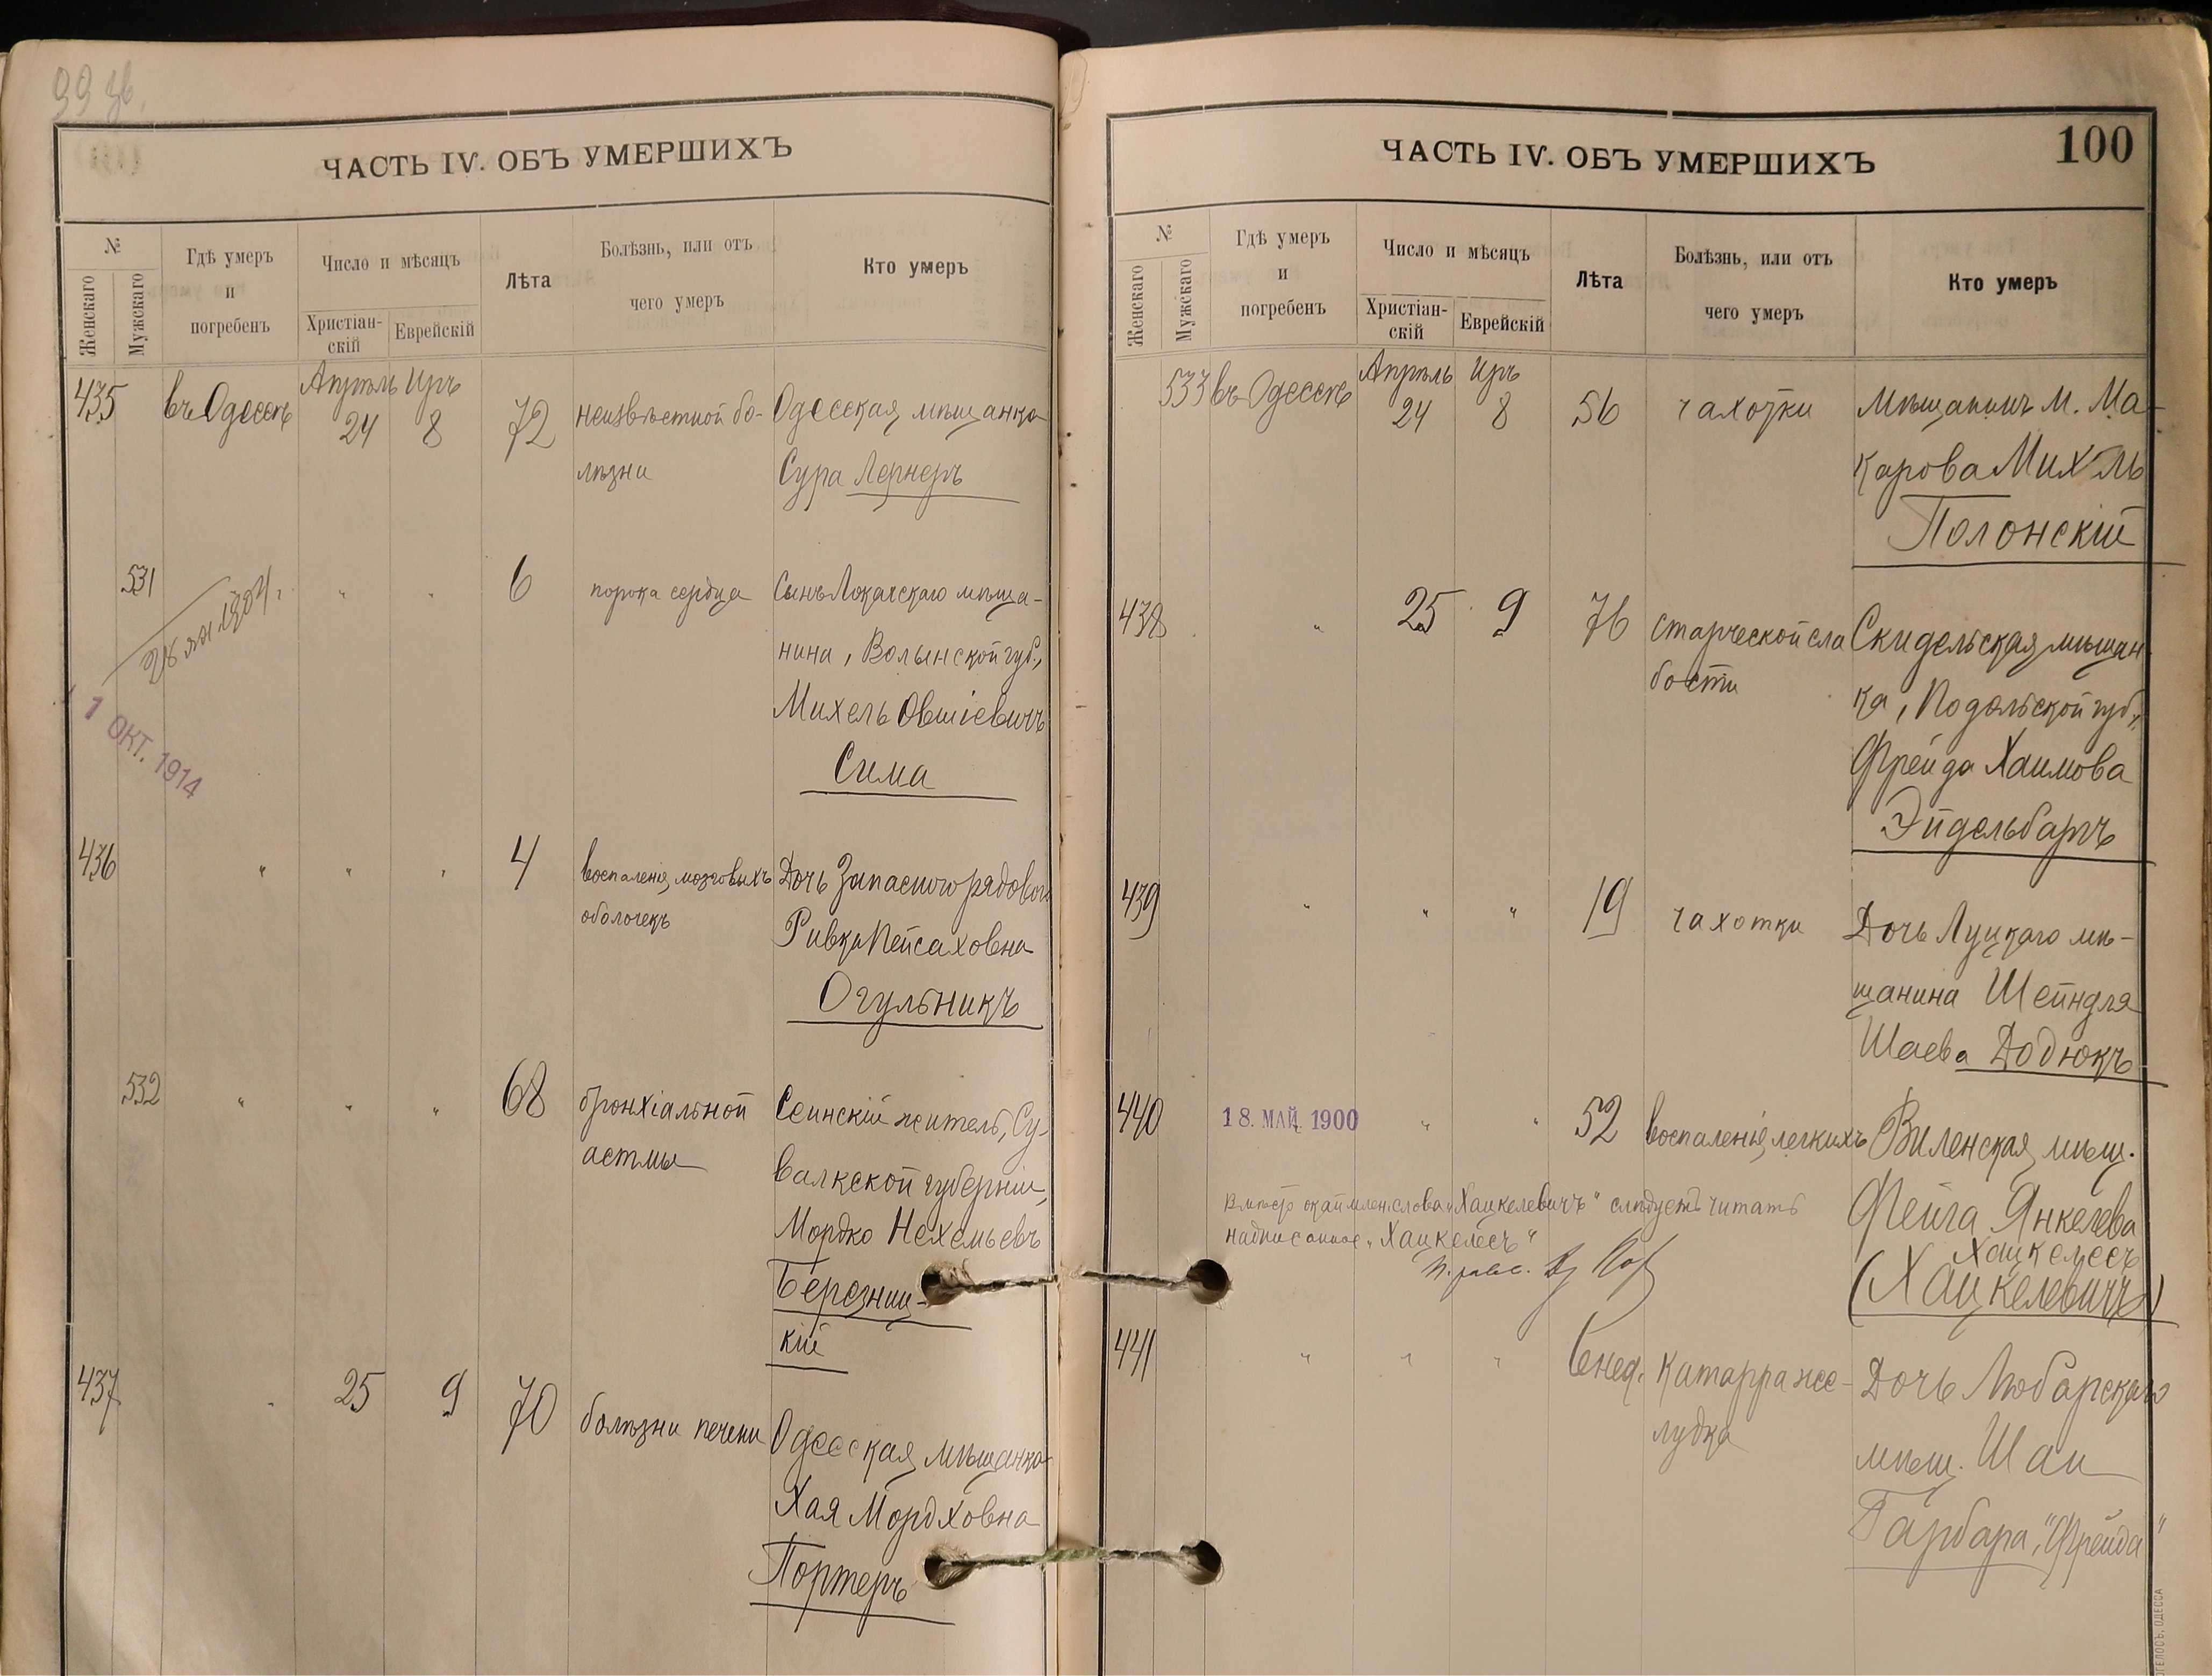 99 зв.
ЧАСТЬ IV. ОБЪ УМЕРШИХЪ
№
Женскаго
Мужскаго
Гдѣ умеръ
и
погребенъ
Число и мѣсяцъ
Христіан-
скій
Еврейскій
Лѣта
Болѣзнь, или отъ
чего умеръ
Кто умеръ
435 въ Одессѣ Апрѣль 24 Иръ 8 72 неизвѣстной бо- Одесская мѣщанка
лѣзни Сура Лернеръ
531 " " 6 порока сердца Сынъ Локачскаго мѣща-
нина, Волынской губ.,
Михель Овшіевичъ
Сима
28 1904.
1 ОКТ. 1914
436 " " " 4 воспаленія мозговыхъ Дочь Запасного рядового
оболочекъ Ривка Пейсаховна
Огульникъ
532 " " " 68 бронхіальной Сеинскій житель, Су-
астмы валкской губерніи,
Мордко Нехемьевъ
Березниц-
кій
437 " 25 9 70 болѣзни печени Одесская мѣщанка
Хая Мордховна
Портеръ
ЧАСТЬ IV. ОБЪ УМЕРШИХЪ
100
№
Женскаго
Мужскаго
Гдѣ умеръ
и
погребенъ
Число и мѣсяцъ
Христіан-
скій
Еврейскій
Лѣта
Болѣзнь, или отъ
чего умеръ
Кто умеръ
533 въ Одессѣ Апрѣль 24 Иръ 8 56 чахотки Мѣщанинъ м. Ма-
карова Михль
Полонскій
438 " 25 9 76 старческой сла Скидельская мѣщан
бости ка, Подольской губ.,
Фрейда Хаимова
Эйдельбаргъ
439 " " " 19 чахотки Дочь Луцкаго мѣ-
щанина Шейндля
Шаева Додюкъ
440 18. МАЙ. 1900 " " 52 воспаленія легкихъ Виленская мѣщ.
Фейга Янкелева
Хацкелесъ
(Хацкелевичъ)
Вмѣсто окаймлен. слова "Хацкелевичъ" слѣдуетъ читать
надписанное "Хацкелесъ"
441 " " " 6 нед. Катарра же- Дочь Любарскаго
лудка мѣщ. Шаи
Гарбара, "Фрейда"